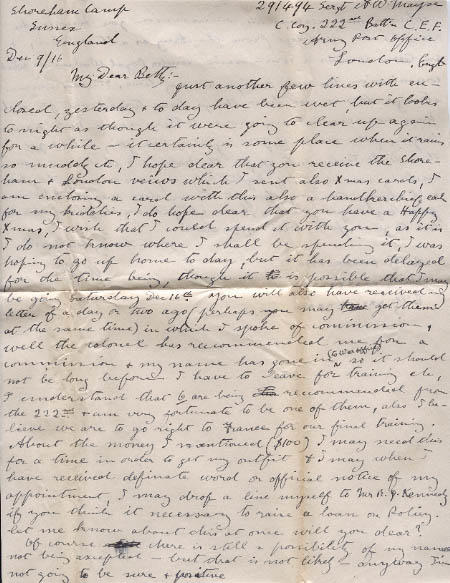 Shoreham Camp
Sussex
England
Dec 9/16
291494 Sergt A W Mayse
C. Coy. 222nd Batt'n C.E.F.
Army Post Office
London, Engl
My Dear Betty:-
Just another few lines with en-
closed, yesterday & to day have been wet, but it looks
to night as though it were going to clear up again
for a while - it certainly is some place when it rains
so muddy etc, I hope dear that you receive the Shore-
ham & London views which I sent also Xmas cards, I
am enclosing a card with this also a handkerchief each
for my kiddies, I do hope dear that you have a Happy
Xmas, I wish that I could spend it with you, as it is
I do not know where I shall be spending it, I was
hoping to go up home to day, but it has been delayed
for the time being, though it is possible that I may
be going Saturday Dec 16th. You will also have received my
letter of a day or two ago (perhaps you may got them
at the same time) in which I spoke of commission,
well the colonel has recommended me for a
commission & my name has gone in so it should
not be long before I have to leave for training etc,
I understand that 6 are being recommended from
the 222nd & am very fortunate to be one of them, also I be-
lieve we are to go right to France for our final training.
About the money I mentioned ($100) I may need this
for a time in order to get my outfit & I may when I
have received definate word or official notice of my
appointment, I may drop a line myself to Mr R. J. Kennedy
if you think it necessary to raise a loan on Policy.
let me know about this at once will you dear?
Of course there is still a possibility of my name
not being accepted - but that is not likely - anyway I'm
not going to be sure & positive